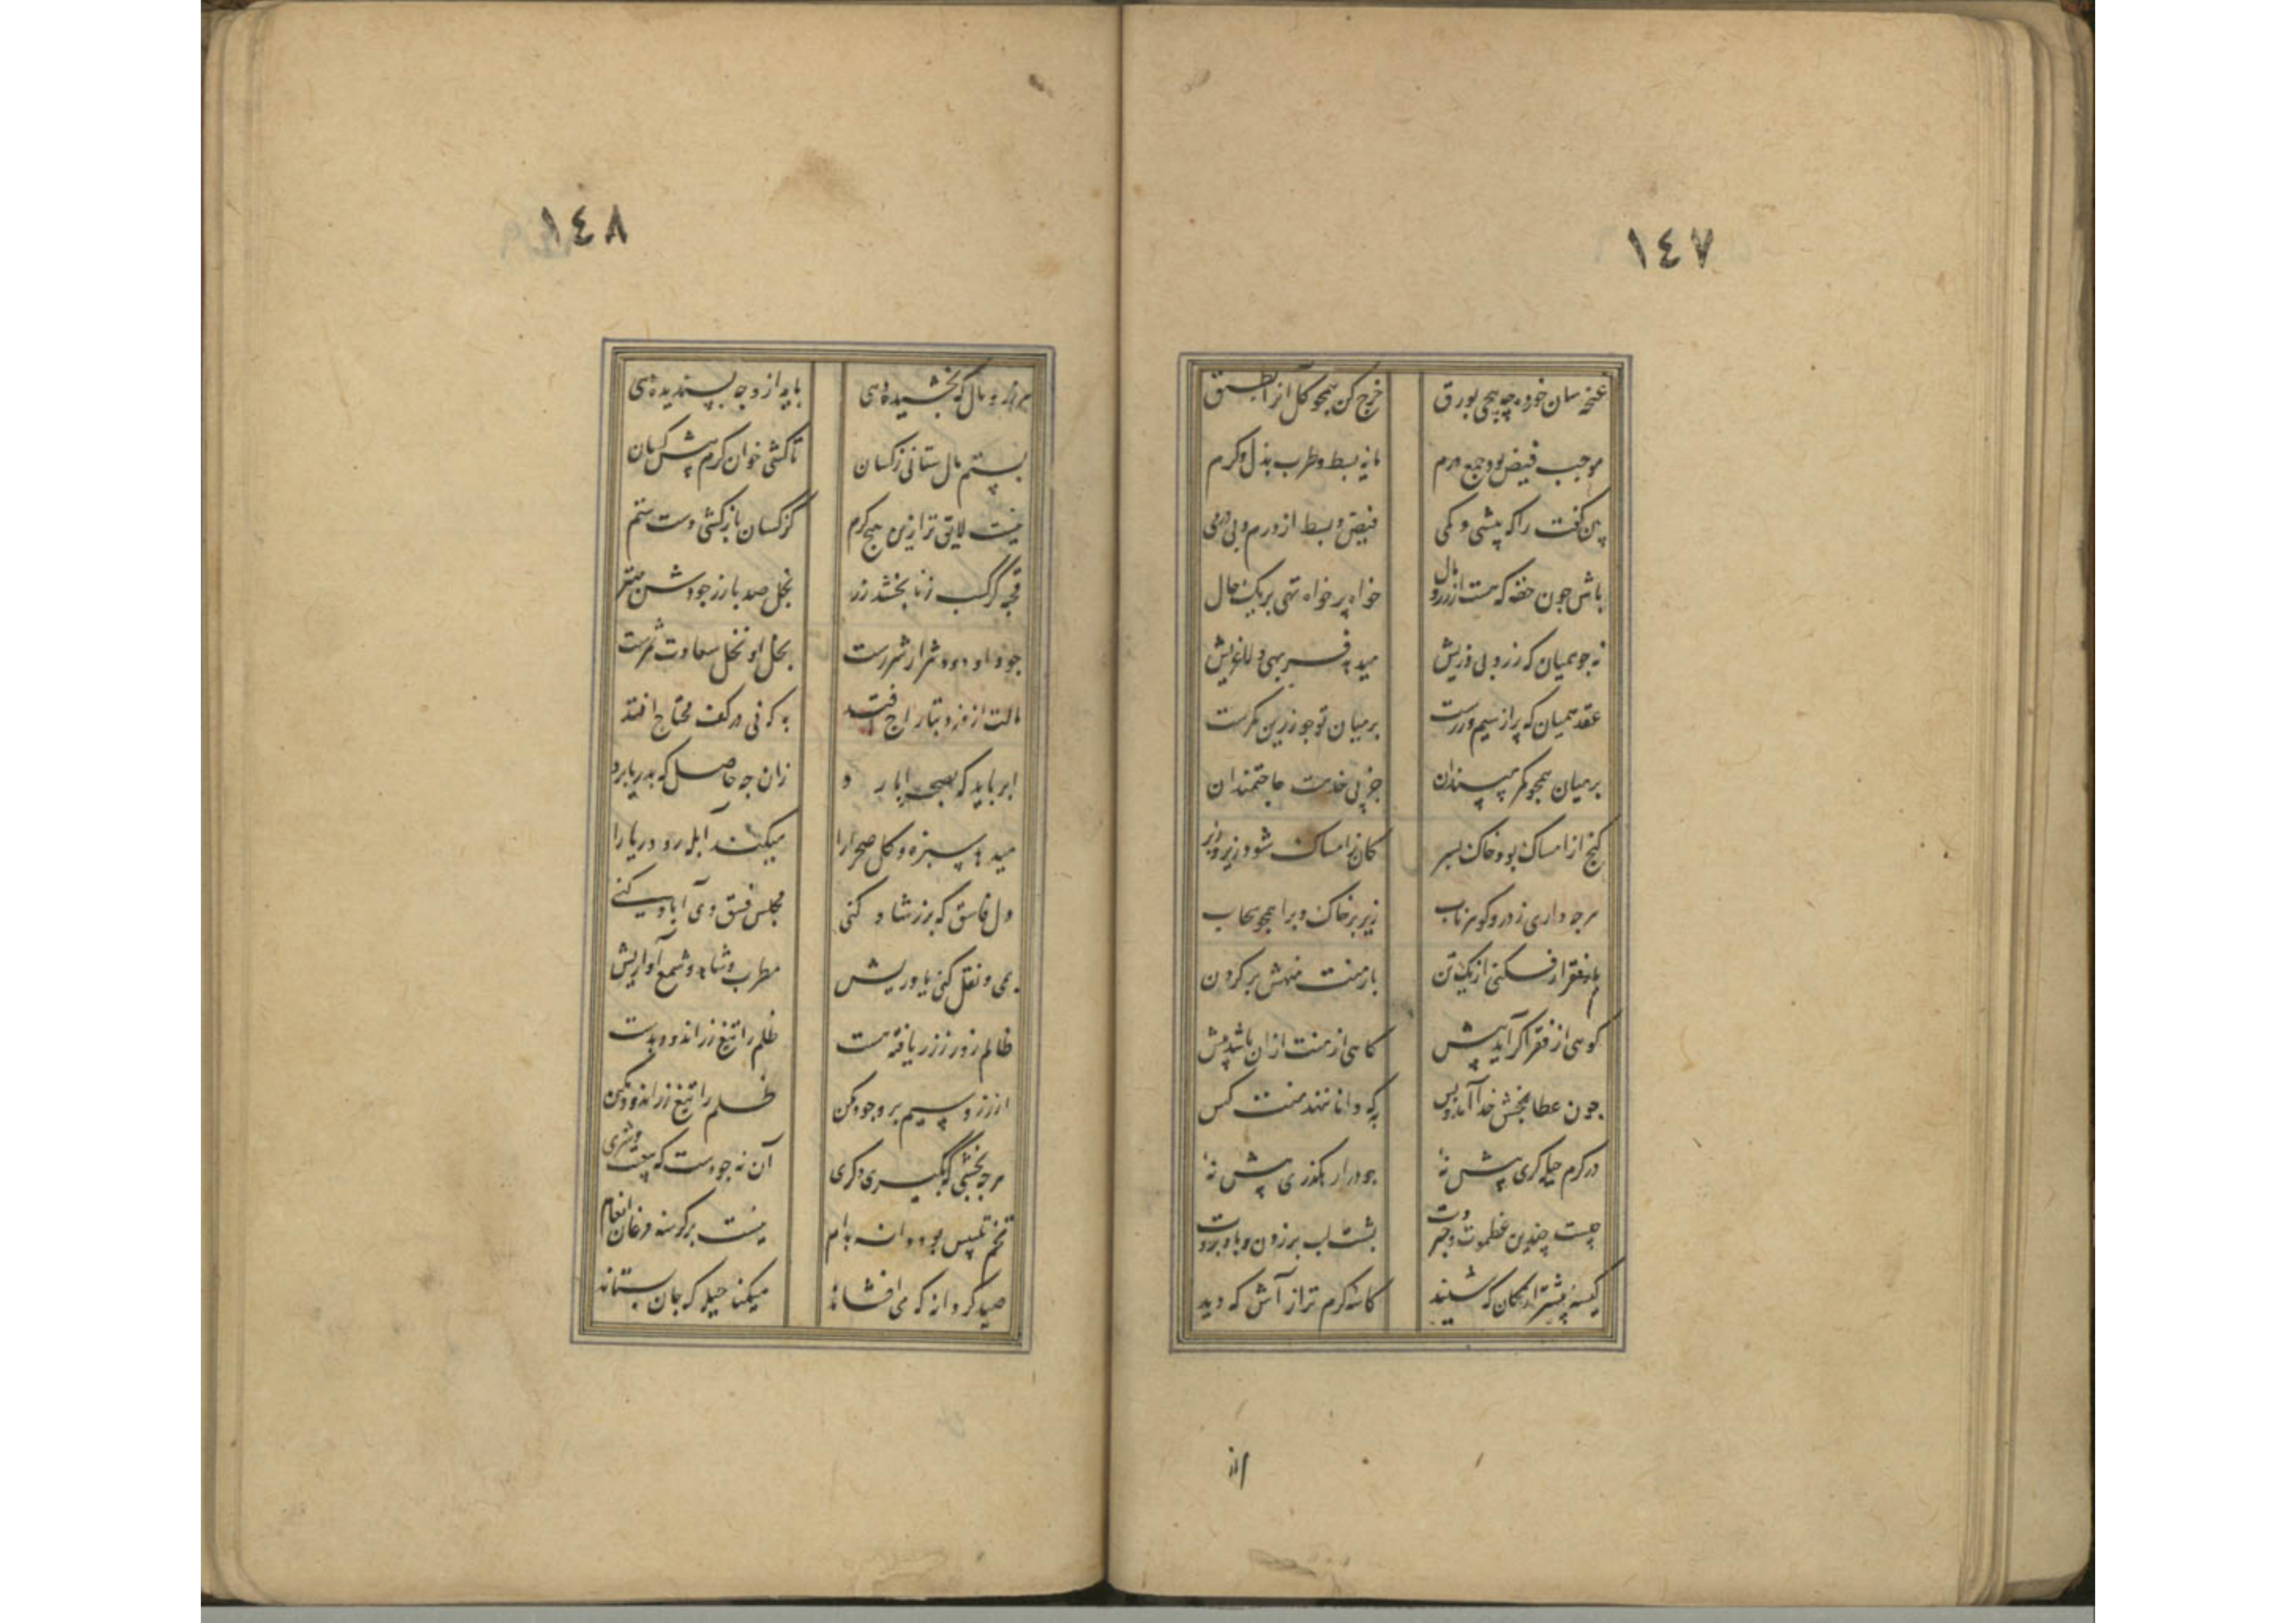 ١٤٧
غنچه سان خرده چه پیچی بورق
خرج کن همچو گل آنرا بطبق
موجب قبض بود جمع درم
مایه بسط و طرب بذل و کرم
کفت را که بیشی و کمی
قبض و بسط از درم و بی درمی
باش چون حقه که هست از در و مال
خواه پر خواه تهی بر یک حال
نه چو همیان که زر و بی زریش
میدهد فربهی و لاغریش
عقد همیان که پر از سیم و زرست
بر میان تو چو زرین کمرست
بر میان همچو کمر مپسند آن
جز پی خدمت حاجتمندان
گنج از امساک بود خاک بسر
کان ز امساک شود زیر و زبر
هرچه داری ز در و گوهر ناب
ریز بر خاک و برا همچو سحاب
بار فقر ار فکنی از یک تن
بار منت منهش بر گردن
کوهی از فقر اگر آید پیش
کاهی از منت ازان باشد بیش
چون عطا بخش خدا آمد و بس
به که دانا ننهد منت کس
در کرم حیله گری پیش نه
جود را رهگذری بیش نه
چیست چندین عظموت و جبروت
پشت لب بر زدن و باد بروت
کیسه پیشتر از کان که شنید
کاسه گرم تر از آش که دید
از
١٤٨
هر زر و مال که بخشیده دهی
باید از وجه پسندیده دهی
بستم مال ستانی ز کسان
تا کشی خوان کرم پیش کسان
نیست لایق تر ازین هیچ کرم
کز کسان باز کشی دست ستم
قحبه کز کسب زنا بخشد زر
بخل صد بار ز جودش بهتر
جود او دود شرار شررست
بخل او نخل سعادت ثمرست
مالت از دزد بتاراج افتد
به که نی در کف محتاج افتد
ابر باید که بصحرا بارد
زان چه حاصل که بدریا بارد
میدهد سبزه و گل صحرا را
میکند آبله رو دریا را
دل فاسق که بزر شاد کنی
مجلس فسق وی آباد کنی
بمی و نقل کنی یاوریش
مطرب و شاهد و شمع آوریش
ظالم زور ز زر یافته است
ظلم را تیغ زر اندود بدست
از زر و سیم برو جود مکن
ظلم را تیغ زر اندود مکن
هرچه بخشی که بگیری دگری
آن نه جودست که بیعست و شری
تخم تلبیس بود دانه بدام
نیست بر گرسنه مرغان انعام
صیدگر دانه که می افشاند
میکند حیله که جان بستاند